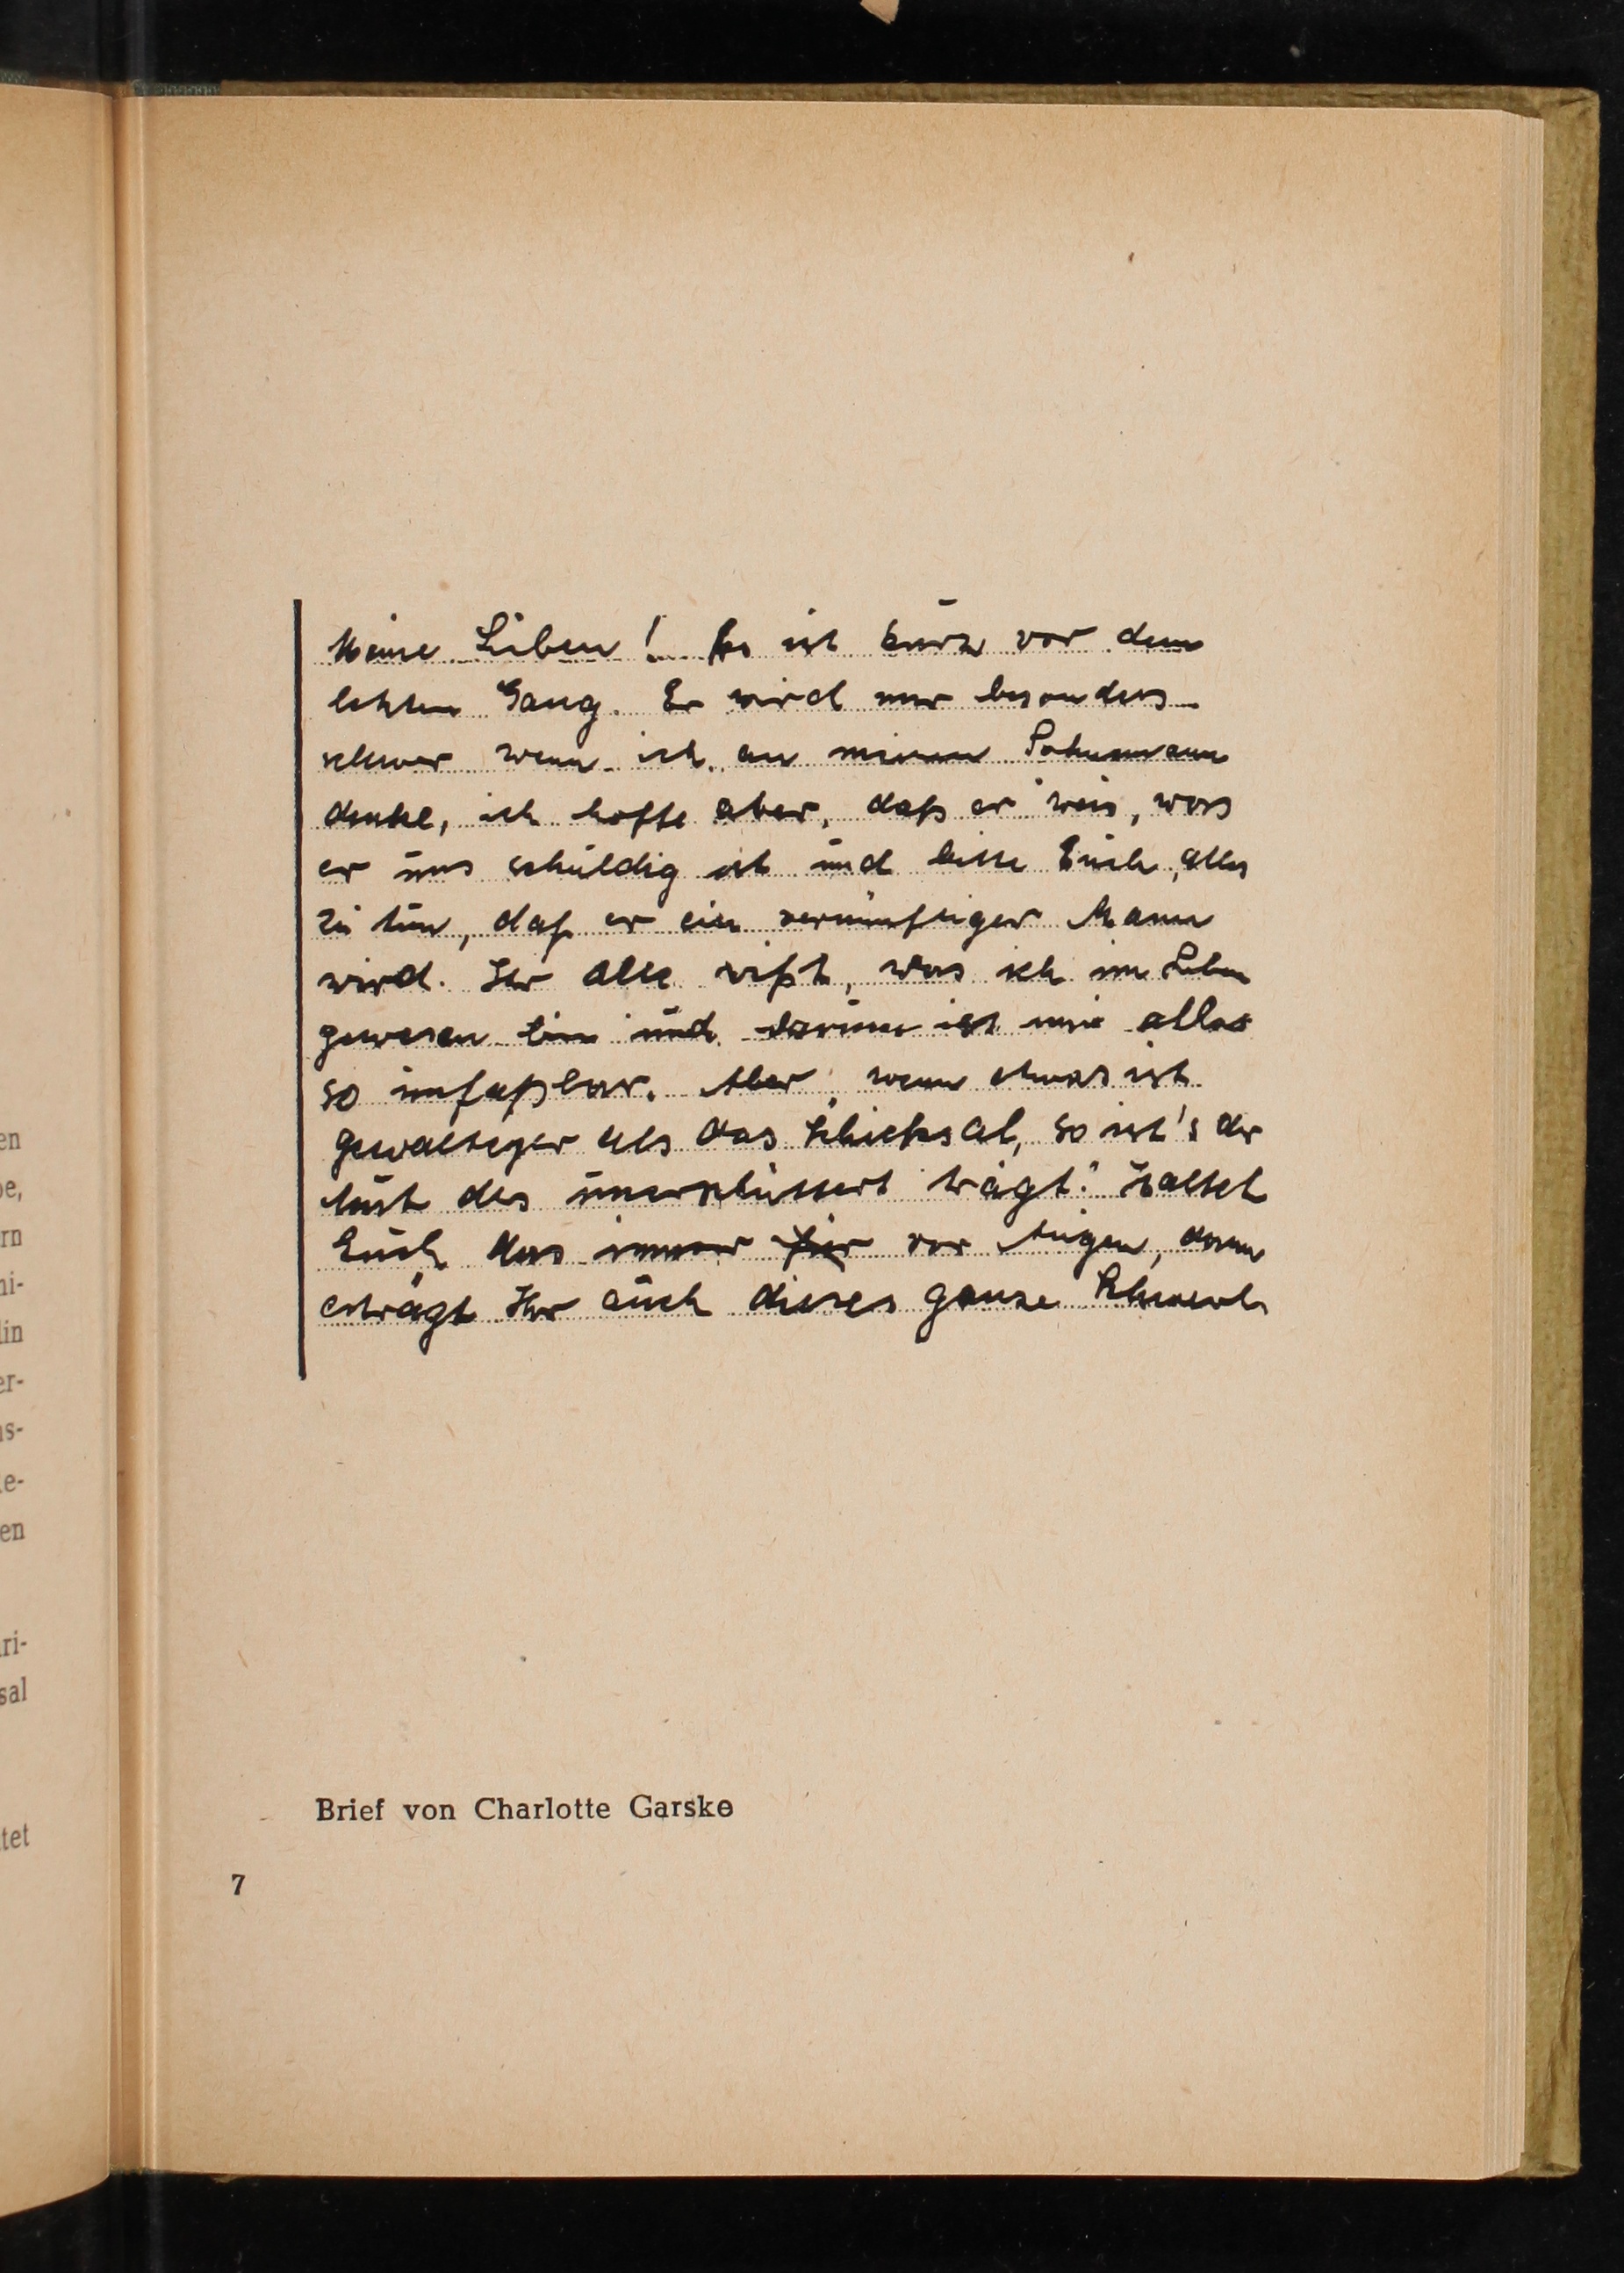 Meine Lieben! Es ist kurz vor dem
letzten Gang. Er wird mir besonders
schwer wenn ich an meinen Sohnemann
denke, ich hoffe aber, daß er weis, was
er uns schuldig ist und bitte Euch, alles
zu tun, daß er ein vernünftiger Mann
wird. Ihr alle wißt, was ich im Leben
gewesen bin und darum ist mir alles
so unfaßbar. Aber „wenn etwas ist
gewaltiger als das Schicksal, so ist's der
Mut des unerschüttert trägt." Haltet
Euch das immer für vor Augen, dann
erträgt Ihr auch dieses ganze Schwere
Brief von Charlotte Garske
7
en
be,
rn
ni-
lin
er-
as-
ke-
en
ri-
sal
tet